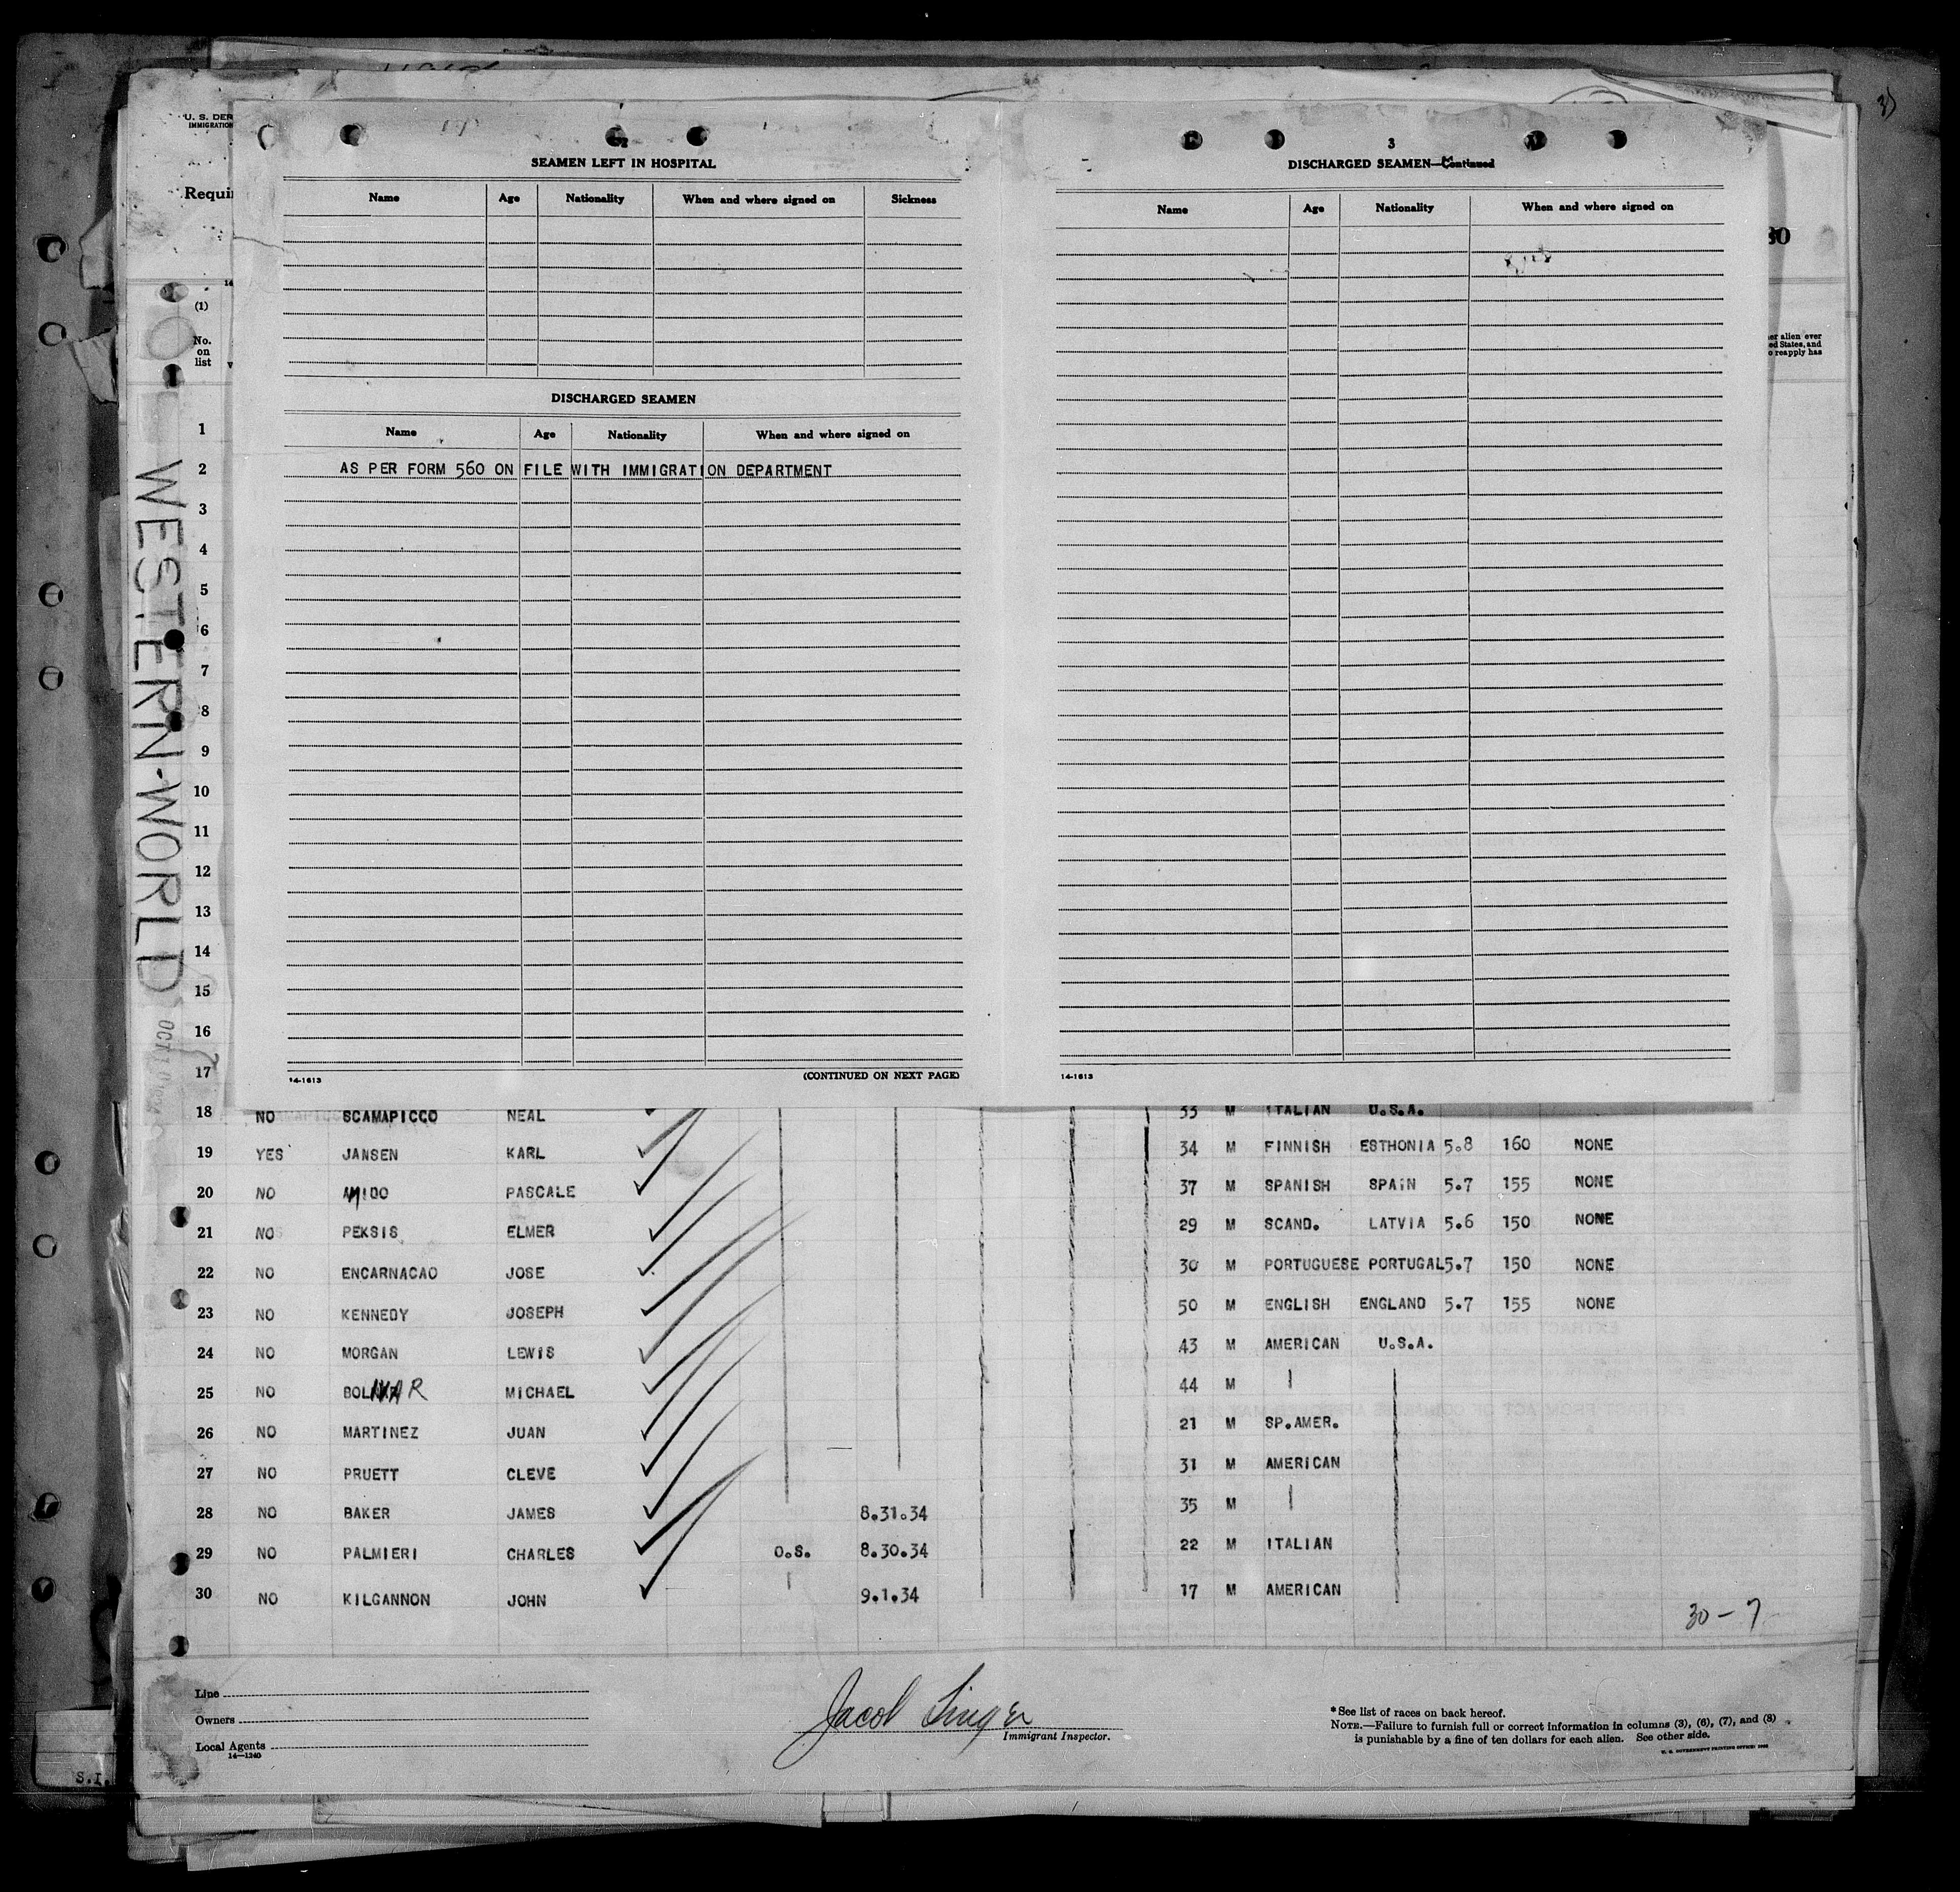 U. S. DEP
IMMIGRATION
Requi
(1)
No.
on
list
WESTERN-WORLD
2
SEAMEN LEFT IN HOSPITAL
Name Age Nationality When and where signed on Sickness
DISCHARGED SEAMEN
Name Age Nationality When and where signed on
AS PER FORM 560 ON FILE WITH IMMIGRATION DEPARTMENT
14-1613 (CONTINUED ON NEXT PAGE)
3
DISCHARGED SEAMEN—Continued
Name Age Nationality When and where signed on
14-1613
er alien ever
ed States, and
o reapply has
1
2
3
4
5
6
7
8
9
10
11
12
13
14
15
16
17
18 NO SCAMAPICCO NEAL 33 M ITALIAN U.S.A.
19 YES JANSEN KARL 34 M FINNISH ESTHONIA 5.8 160 NONE
20 NO PASCALE 37 M SPANISH SPAIN 5.7 155 NONE
21 NO PEKSIS ELMER 29 M SCAND. LATVIA 5.6 150 NONE
22 NO ENCARNACAO JOSE 30 M PORTUGUESE PORTUGAL 5.7 150 NONE
23 NO KENNEDY JOSEPH 50 M ENGLISH ENGLAND 5.7 155 NONE
24 NO MORGAN LEWIS 43 M AMERICAN U.S.A.
25 NO BOLIVAR MICHAEL 44 M
26 NO MARTINEZ JUAN 21 M SP.AMER.
27 NO PRUETT CLEVE 31 M AMERICAN
28 NO BAKER JAMES 8.31.34 35 M
29 NO PALMIERI CHARLES O.S. 8.30.34 22 M ITALIAN
30 NO KILGANNON JOHN 9.1.34 17 M AMERICAN
30-7
Line
Owners
Local Agents
14-1240
Jacob Singer
Immigrant Inspector.
*See list of races on back hereof.
NOTE.—Failure to furnish full or correct information in columns (3), (6), (7), and (8)
is punishable by a fine of ten dollars for each alien. See other side.
S.I.